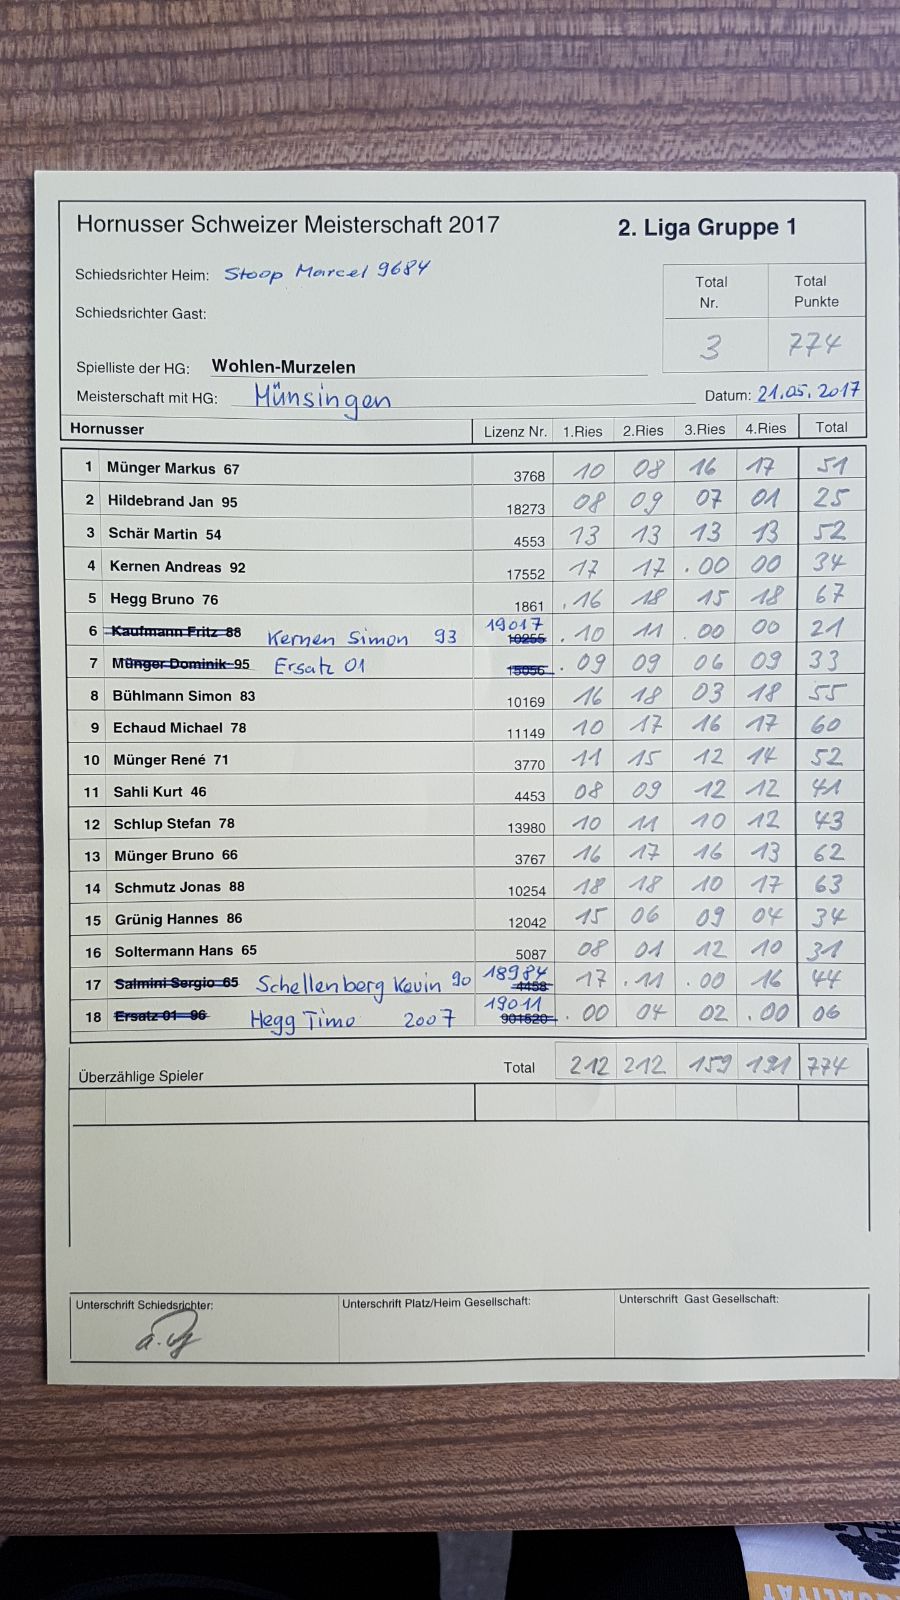 Hornusser Schweizer Meisterschaft 2017 2. Liga Gruppe 1
Schiedsrichter Heim: Stoop Marcel 9684
Total Nr. Total Punkte
Schiedsrichter Gast:
3 774
Spielliste der HG: Wohlen-Murzelen
Meisterschaft mit HG: Münsingen Datum: 21.05.2017
Hornusser Lizenz Nr. 1.Ries 2.Ries 3.Ries 4.Ries Total
1 Münger Markus 67 3768 10 08 16 17 51
2 Hildebrand Jan 95 18273 08 09 07 01 25
3 Schär Martin 54 4553 13 13 13 13 52
4 Kernen Andreas 92 17552 17 17 .00 00 34
5 Hegg Bruno 76 1861 .16 18 15 18 67
6 Kaufmann Fritz 88 Kernen Simon 93 19017 10255 .10 11 .00 00 21
7 Münger Dominik 95 Ersatz 01 15056 .09 09 06 09 33
8 Bühlmann Simon 83 10169 16 18 03 18 55
9 Echaud Michael 78 11149 10 17 16 17 60
10 Münger René 71 3770 11 15 12 14 52
11 Sahli Kurt 46 4453 08 09 12 12 41
12 Schlup Stefan 78 13980 10 11 10 12 43
13 Münger Bruno 66 3767 16 17 16 13 62
14 Schmutz Jonas 88 10254 18 18 10 17 63
15 Grünig Hannes 86 12042 15 06 09 04 34
16 Soltermann Hans 65 5087 08 01 12 10 31
17 Salmini Sergio 65 Schellenberg Kevin 90 18984 4458 17 .11 .00 16 44
18 Ersatz 01 96 Hegg Timo 2007 19011 901520 .00 04 02 .00 06
Überzählige Spieler Total 212 212 159 191 774
Unterschrift Schiedsrichter: Unterschrift Platz/Heim Gesellschaft: Unterschrift Gast Gesellschaft: